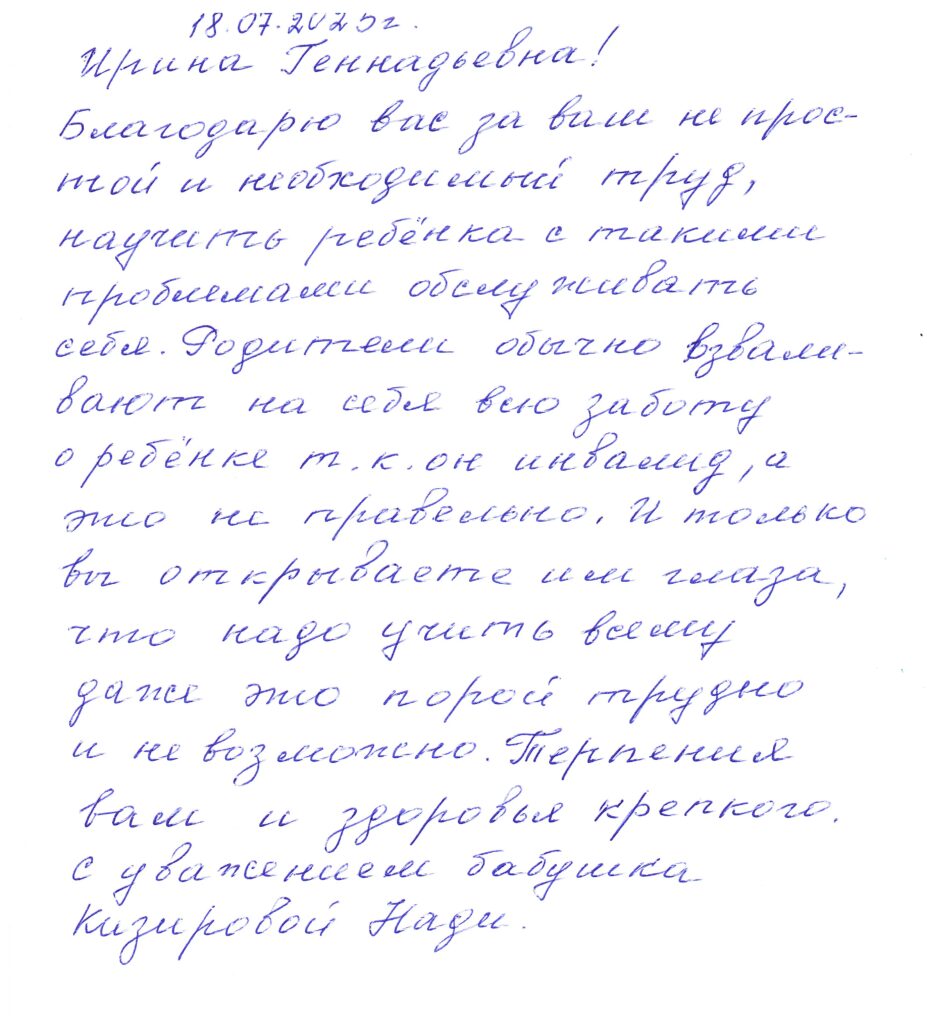 18.07.2025г.
Ирина Геннадьевна!
Благодарю вас за ваш не прос-
той и необходимый труд,
научить ребёнка с такими
проблемами обслуживать
себя. Родители обычно взвали-
вают на себя всю заботу
о ребёнке т.к. он инвалид, а
это не правельно. И только
вы открываете им глаза,
что надо учить всему
даже это порой трудно
и не возможно. Терпения
вам и здоровья крепкого.
С уважением бабушка
Кизировой Нади.